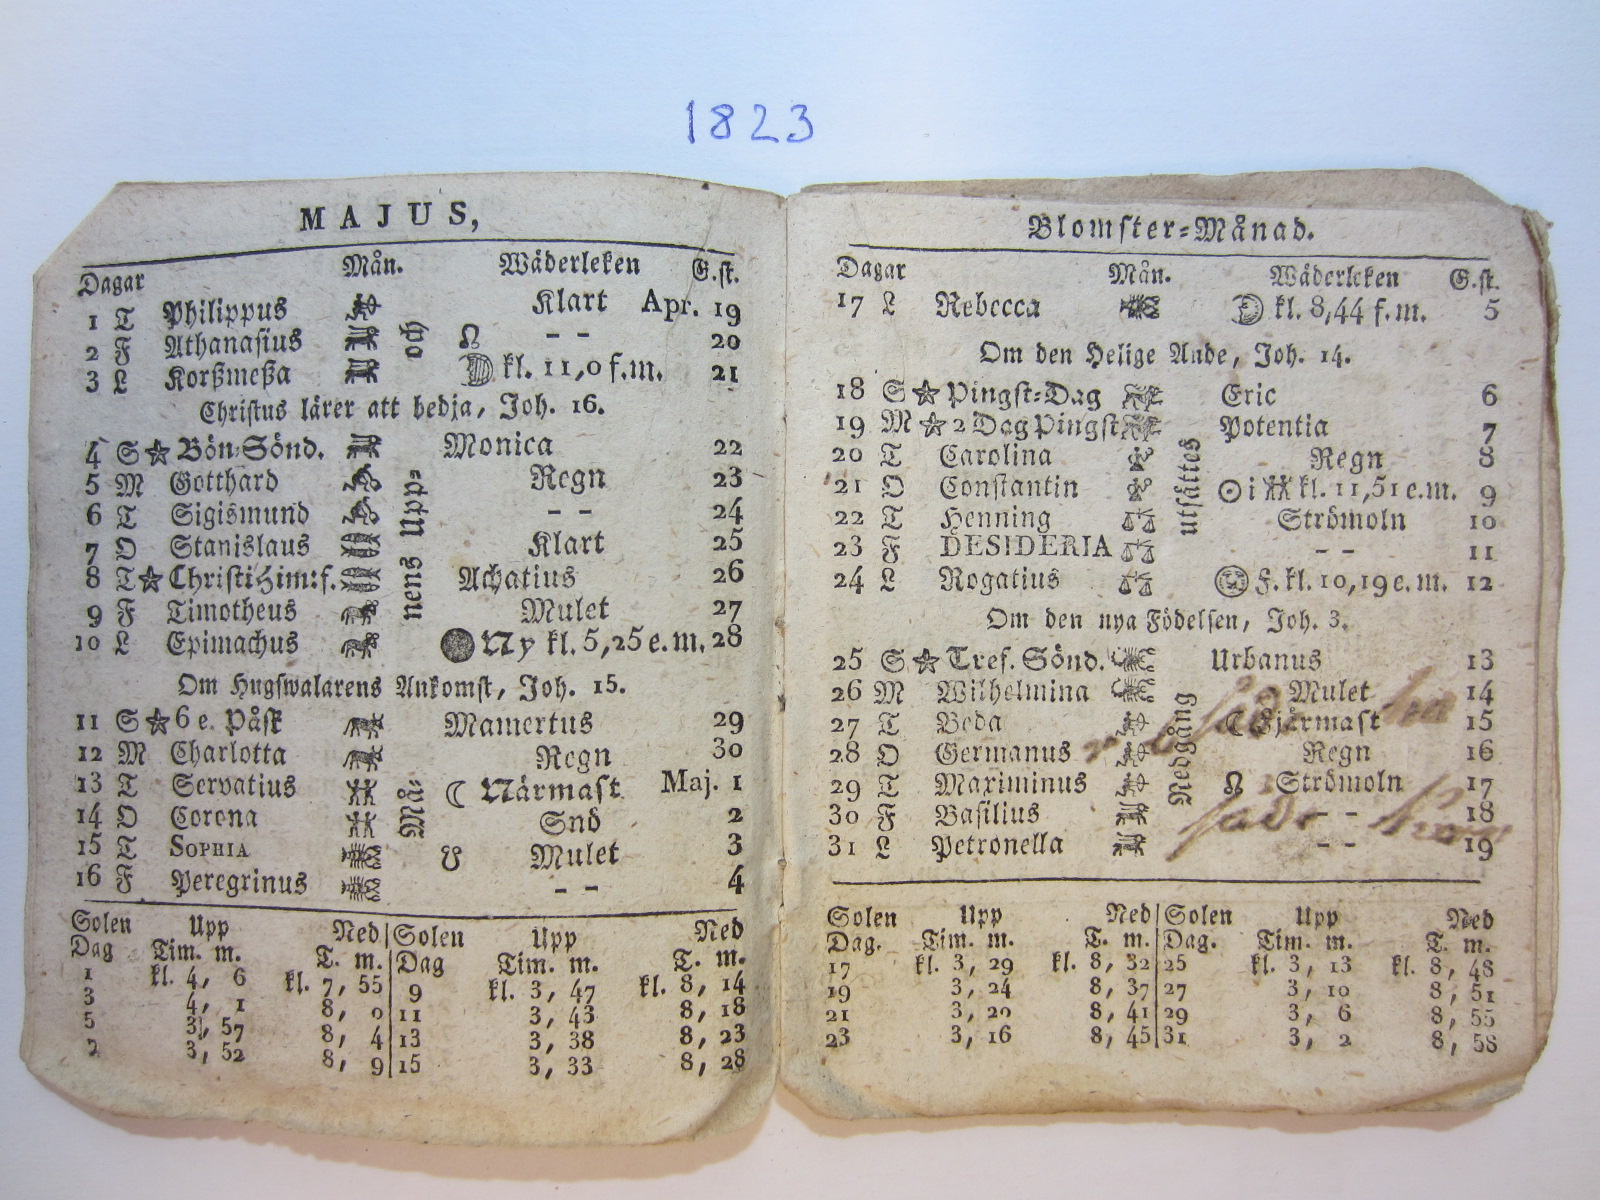 1823
MAJUS,
Dagar Mån. Wäderleken G.st.
1 T Philippus Klart Apr. 19
2 F Athanasius och ☊ - - 20
3 L Korßmeßa kl. 11,0 f.m. 21
Christus lärer att bedja, Joh. 16.
4 S ☆ Bön-Sönd. Monica 22
5 M Gotthard Regn 23
6 T Sigismund - - 24
7 O Stanislaus Klart 25
8 T ☆ Christi Him:f. Achatius 26
9 F Timotheus nens Upp- Mulet 27
10 L Epimachus Ny kl. 5,25 e.m. 28
Om Hugswalarens Ankomst, Joh. 15.
11 S ☆ 6 e. Påsk Mamertus 29
12 M Charlotta Regn 30
13 T Servatius ☾ Närmast Maj. 1
14 O Corona Må- Snö 2
15 T SOPHIA ☋ Mulet 3
16 F Peregrinus - - 4
Solen Upp Ned Solen Upp Ned
Dag Tim. m. T. m. Dag Tim. m. T. m.
1 kl. 4, 6 kl. 7, 55 9 kl. 3, 47 kl. 8, 14
3 4, 1 8, 0 11 3, 43 8, 18
5 3, 57 8, 4 13 3, 38 8, 23
3, 52 8, 9 15 3, 33 8, 28
Blomster-Månad.
Dagar Mån. Wäderleken G.st.
17 L Rebecca kl. 8,44 f.m. 5
Om den Helige Ande, Joh. 14.
18 S ☆ Pingst-Dag Eric 6
19 M ☆ 2 Dag Pingst Potentia 7
20 T Carolina Regn 8
21 O Constantin utsättes ☉ i ♊ kl. 11,51 e.m. 9
22 T Henning Strömoln 10
23 F DESIDERIA - - 11
24 L Rogatius F. kl. 10,19 e.m. 12
Om den nya Födelsen, Joh. 3.
25 S ☆ Tref. Sönd. Urbanus 13
26 M Wilhelmina Mulet 14
27 T Beda ☾ Fjärmast 15
28 O Germanus Nedgång Regn 16
29 T Maximinus ☊ Strömoln 17
30 F Basilius - - 18
31 L Petronella - - 19
Solen Upp Ned Solen Upp Ned
Dag. Tim. m. T. m. Dag. Tim. m. T. m.
17 kl. 3, 29 kl. 8, 32 25 kl. 3, 13 kl. 8, 48
19 3, 24 8, 37 27 3, 10 8, 51
21 3, 20 8, 41 29 3, 6 8, 55
23 3, 16 8, 45 31 3, 2 8, 58